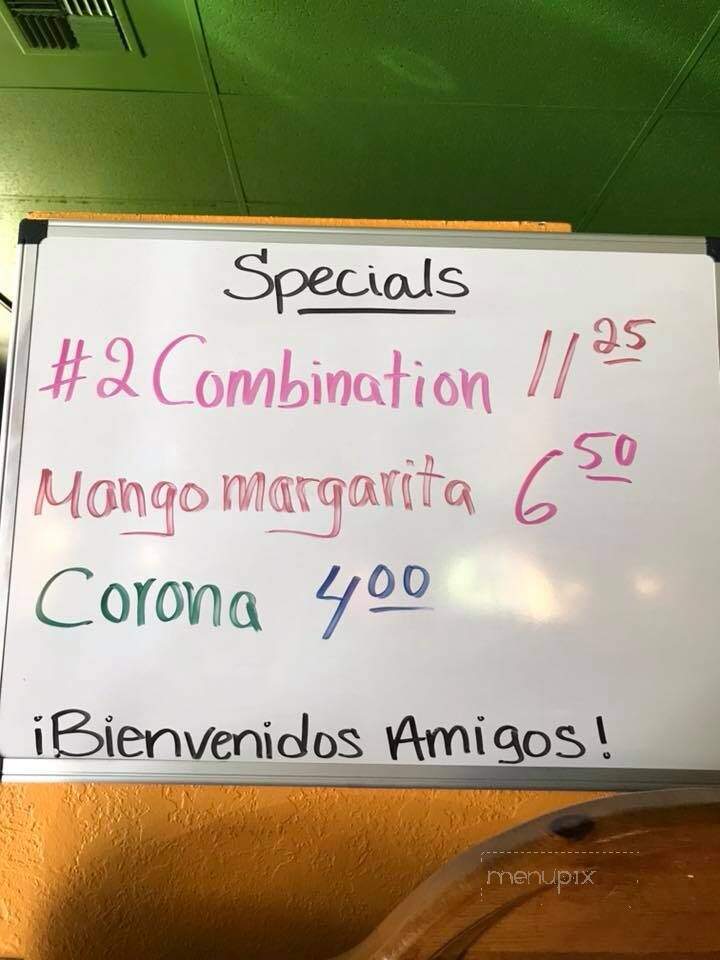 Specials
#2 Combination 11 25
Mango margarita 6 50
Corona 4 00
¡Bienvenidos Amigos!
menupix